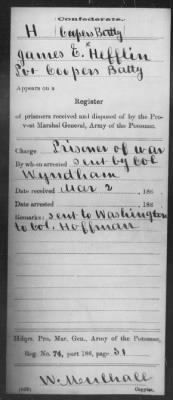 Confederate.
H Coopers Batty
James E. Hefflin
Pvt Coopers Batty
Appears on a
Register
of prisoners received and disposed of by the Pro-
vost Marshal General, Army of the Potomac.
Charge Prisoner of war
By whom arrested sent by Col
Wyndham
Date received Mar 2, 186 .
Date arrested , 186 .
Remarks: sent to Washington
to Col. Hoffman
Hdqrs. Pro. Mar. Gen., Army of the Potomac,
Reg. No. 74, part 186, page 31
W. Mulhall
Copyist.